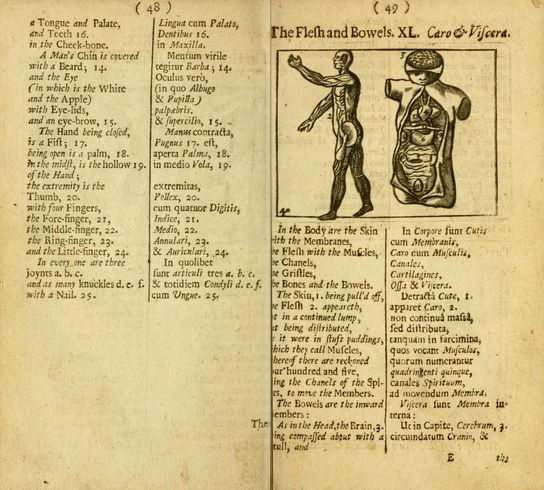 ( 48 )
a Tongue and Palate,
and Teeth 16.
in the Cheek-bone.
A Man's Chin is covered
with a Beard; 14.
and the Eye
(in which is the White
and the Apple)
with Eye-lids,
and an eye-brow, 15.
The Hand being closed,
is a Fist; 17.
being open is a palm, 18.
in the midst, is the hollow 19.
of the Hand;
the extremity is the
Thumb, 20.
with four Fingers,
the Fore-finger, 21,
the Middle-finger, 22.
the Ring-finger, 23.
and the Little-finger, 24.
In every one are three
joynts a. b. c.
and as many knuckles d. e. f.
with a Nail. 25.
Lingua cum Palato,
Dentibus 16.
in Maxilla.
Mentum virile
tegitur Barba; 14.
Oculus verò,
(in quo Albugo
& Pupilla)
palpæbris.
& supercilio, 15.
Manus contracta,
Pugnus 17. est,
aperta Palma, 18.
in medio Vola, 19.
extremitas,
Pollex, 20.
cum quatuor Digitis,
Indice, 21.
Medio, 22.
Annulari, 23.
& Auriculari, 24.
In quolibet
sunt articuli tres a. b. c.
& totidem Condyli d. e. f.
cum Ungue. 25.
The
( 49 )
The Flesh and Bowels. XL. Caro & Viscera.
1
2
3
4
In the Body are the Skin
with the Membranes,
the Flesh with the Muscles,
the Chanels,
the Gristles,
the Bones and the Bowels.
The Skin, 1. being pull'd off,
the Flesh 2. appeareth,
not in a continued lump,
but being distributed,
as it were in stuft puddings,
which they call Muscles,
whereof there are reckoned
four hundred and five,
being the Chanels of the Spi-
rits, to move the Members.
The Bowels are the inward
Members:
As in the Head, the Brain, 3.
being compassed about with a
Skull, and
In Corpore sunt Cutis
cum Membranis,
Caro cum Musculis,
Canales,
Cartilagines,
Ossa & Viscera.
Detractâ Cute, 1.
apparet Caro, 2.
non continuâ massâ,
sed distributa,
tanquam in farcimina,
quos vocant Musculos,
quorum numerantur
quadringenti quinque,
canales Spirituum,
ad movendum Membra.
Viscera sunt Membra in-
terna:
Ut in Capite, Cerebrum, 3.
circumdatum Cranio, &
E
the